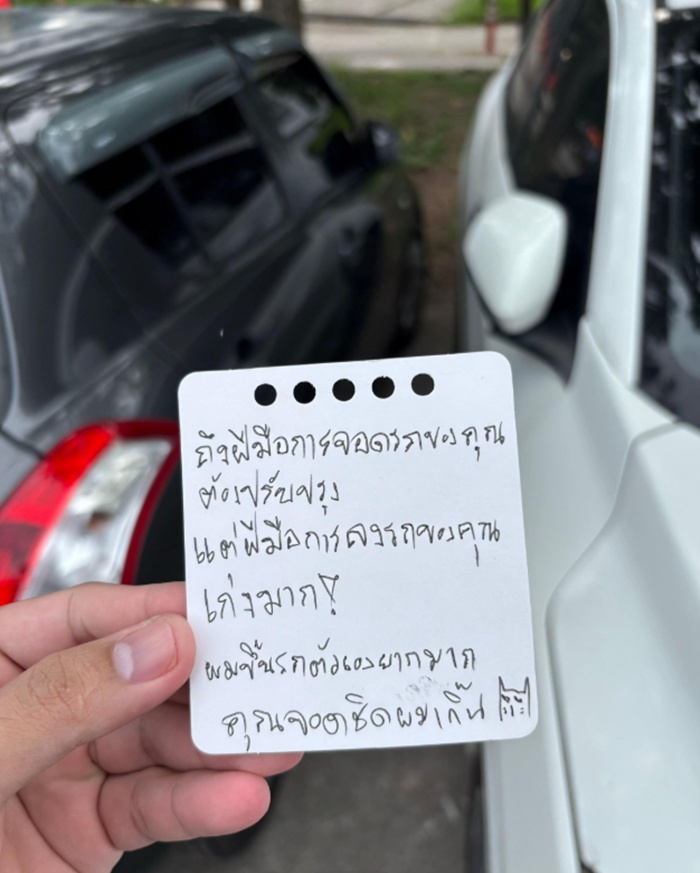 ถึงฝีมือการจอดรถของคุณ
ต้องปรับปรุง
แต่ฝีมือการลงรถของคุณ
เก่งมาก!
ผมขึ้นรถตัวเองยากมาก
คุณจอดชิดผมเกิ๊น